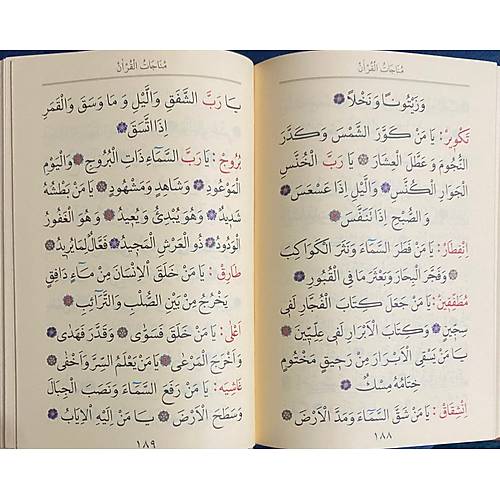 مُنَاجَاتُ الْقُرْاٰنْ
وَزَيْتُونًا وَنَخْلًا
تَكْوِيرْ: يَا مَنْ كَوَّرَ الشَّمْسَ وَكَدَّرَ
النُّجُومَ وَعَطَّلَ الْعِشَارَ يَا رَبَّ الْخُنَّسِ
الْجَوَارِ الْكُنَّسِ وَالَّيْلِ اِذَا عَسْعَسَ
وَالصُّبْحِ اِذَا تَنَفَّسَ
اِنْفِطَارْ: يَا مَنْ فَطَرَ السَّمَاءَ وَنَثَرَ الْكَوَاكِبَ
وَفَجَّرَ الْبِحَارَ وَبَعْثَرَ مَا فِي الْقُبُورِ
مُطَفِّفِينْ: يَا مَنْ جَعَلَ كِتَابَ الْفُجَّارِ لَفِي
سِجِّينٍ وَكِتَابَ الْاَبْرَارِ لَفِي عِلِّيِّينَ
يَا مَنْ يَسْقِي الْاَبْرَارَ مِنْ رَحِيقٍ مَخْتُومٍ
خِتَامُهُ مِسْكٌ
اِنْشِقَاقْ: يَا مَنْ شَقَّ السَّمَاءَ وَمَدَّ الْاَرْضَ
١٨٨
مُنَاجَاتُ الْقُرْاٰنْ
يَا رَبَّ الشَّفَقِ وَالَّيْلِ وَمَا وَسَقَ وَالْقَمَرِ
اِذَا اتَّسَقَ
بُرُوجْ: يَا رَبَّ السَّمَاءِ ذَاتِ الْبُرُوجِ وَالْيَوْمِ
الْمَوْعُودِ وَشَاهِدٍ وَمَشْهُودٍ يَا مَنْ بَطْشُهُ
شَدِيدٌ وَهُوَ يُبْدِئُ وَيُعِيدُ وَهُوَ الْغَفُورُ
الْوَدُودُ ذُو الْعَرْشِ الْمَجِيدُ فَعَّالٌ لِمَا يُرِيدُ
طَارِقْ: يَا مَنْ خَلَقَ الْاِنْسَانَ مِنْ مَاءٍ دَافِقٍ
يَخْرُجُ مِنْ بَيْنِ الصُّلْبِ وَالتَّرَائِبِ
اَعْلٰى: يَا مَنْ خَلَقَ فَسَوّٰى وَقَدَّرَ فَهَدٰى
وَاَخْرَجَ الْمَرْعٰى يَا مَنْ يَعْلَمُ السِّرَّ وَاَخْفٰى
غَاشِيَه: يَا مَنْ رَفَعَ السَّمَاءَ وَنَصَبَ الْجِبَالَ
وَسَطَحَ الْاَرْضَ يَا مَنْ اِلَيْهِ الْاِيَابُ
١٨٩